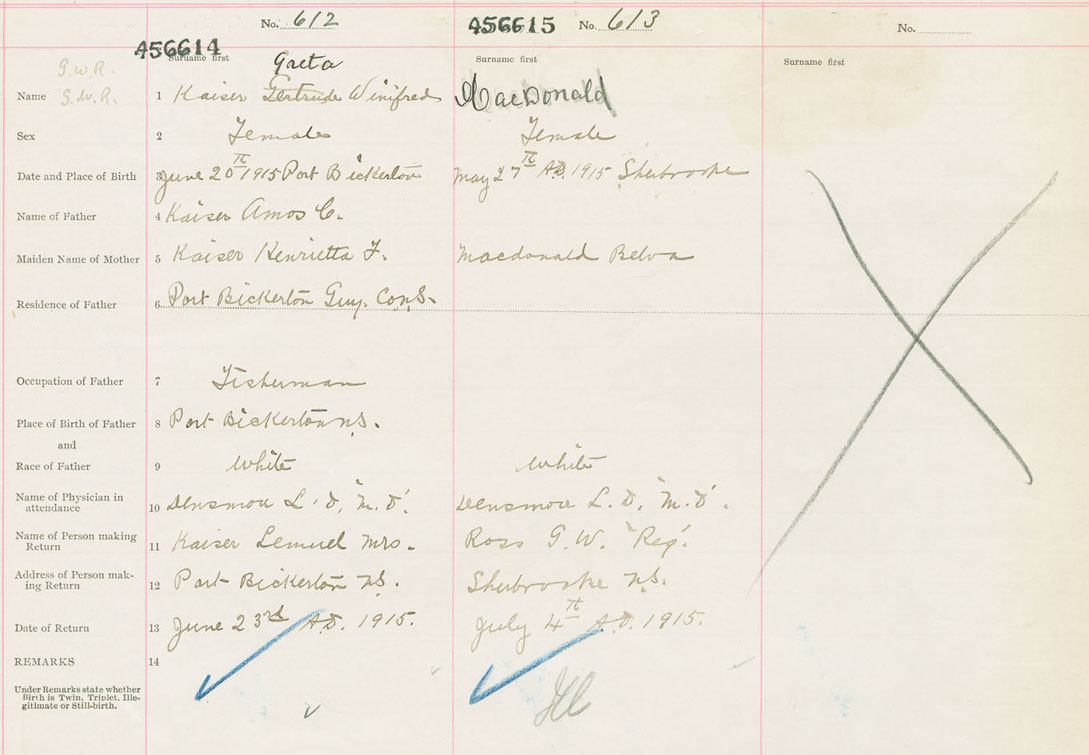 No. 612
456615 No. 613
No.
456614
Surname first
Surname first
Surname first
Greta
G.W.R.
Name G.W.R. 1 Kaiser Gertrude Winifred MacDonald
Sex 2 Female Female
Date and Place of Birth 3 June 20th 1915 Port Bickerton May 27th A.D. 1915 Sherbrooke
Name of Father 4 Kaiser Amos C.
Maiden Name of Mother 5 Kaiser Henrietta F. Macdonald Belva
Residence of Father 6 Port Bickerton Guy. Co N.S.
Occupation of Father 7 Fisherman
Place of Birth of Father 8 Port Bickerton N.S.
and
Race of Father 9 White White
Name of Physician in
attendance 10 Densmore L. D, "M.D". Densmore L. D. "M.D".
Name of Person making
Return 11 Kaiser Lemuel Mrs. Ross G. W. "Reg".
Address of Person mak-
ing Return 12 Port Bickerton N.S. Sherbrooke N.S.
Date of Return 13 June 23rd A.D. 1915. July 4th A.D. 1915.
REMARKS 14
Under Remarks state whether
Birth is Twin, Triplet, Ille-
gitimate or Still-birth.